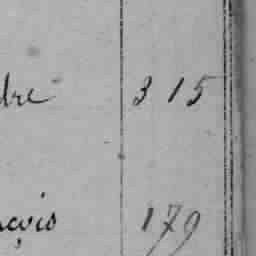 dre 315
nçois 179